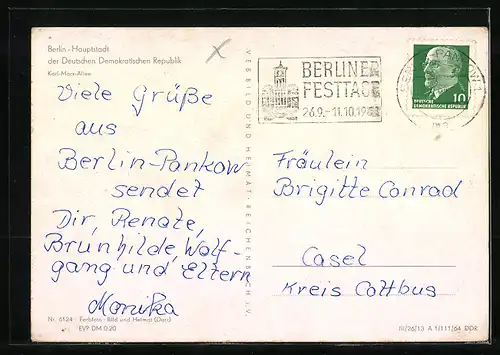 Berlin - Hauptstadt
der Deutschen Demokratischen Republik
Karl-Marx-Allee
Viele Grüße
aus
Berlin-Pankow
sendet
Dir, Renate,
Brunhilde, Wolf-
gang und Eltern
Monika
Nr. 6124 · Farbfoto: Bild und Heimat (Darr)
EVP DM 0.20
VEB BILD UND HEIMAT REICHENBACH I. V.
BERLINER
FESTTAGE
26.9.–11.10.
DEUTSCHE
DEMOKRATISCHE REPUBLIK
10
Fräulein
Brigitte Conrad
Casel
Kreis Cottbus
III/26/13 A 1/111/64 DDR